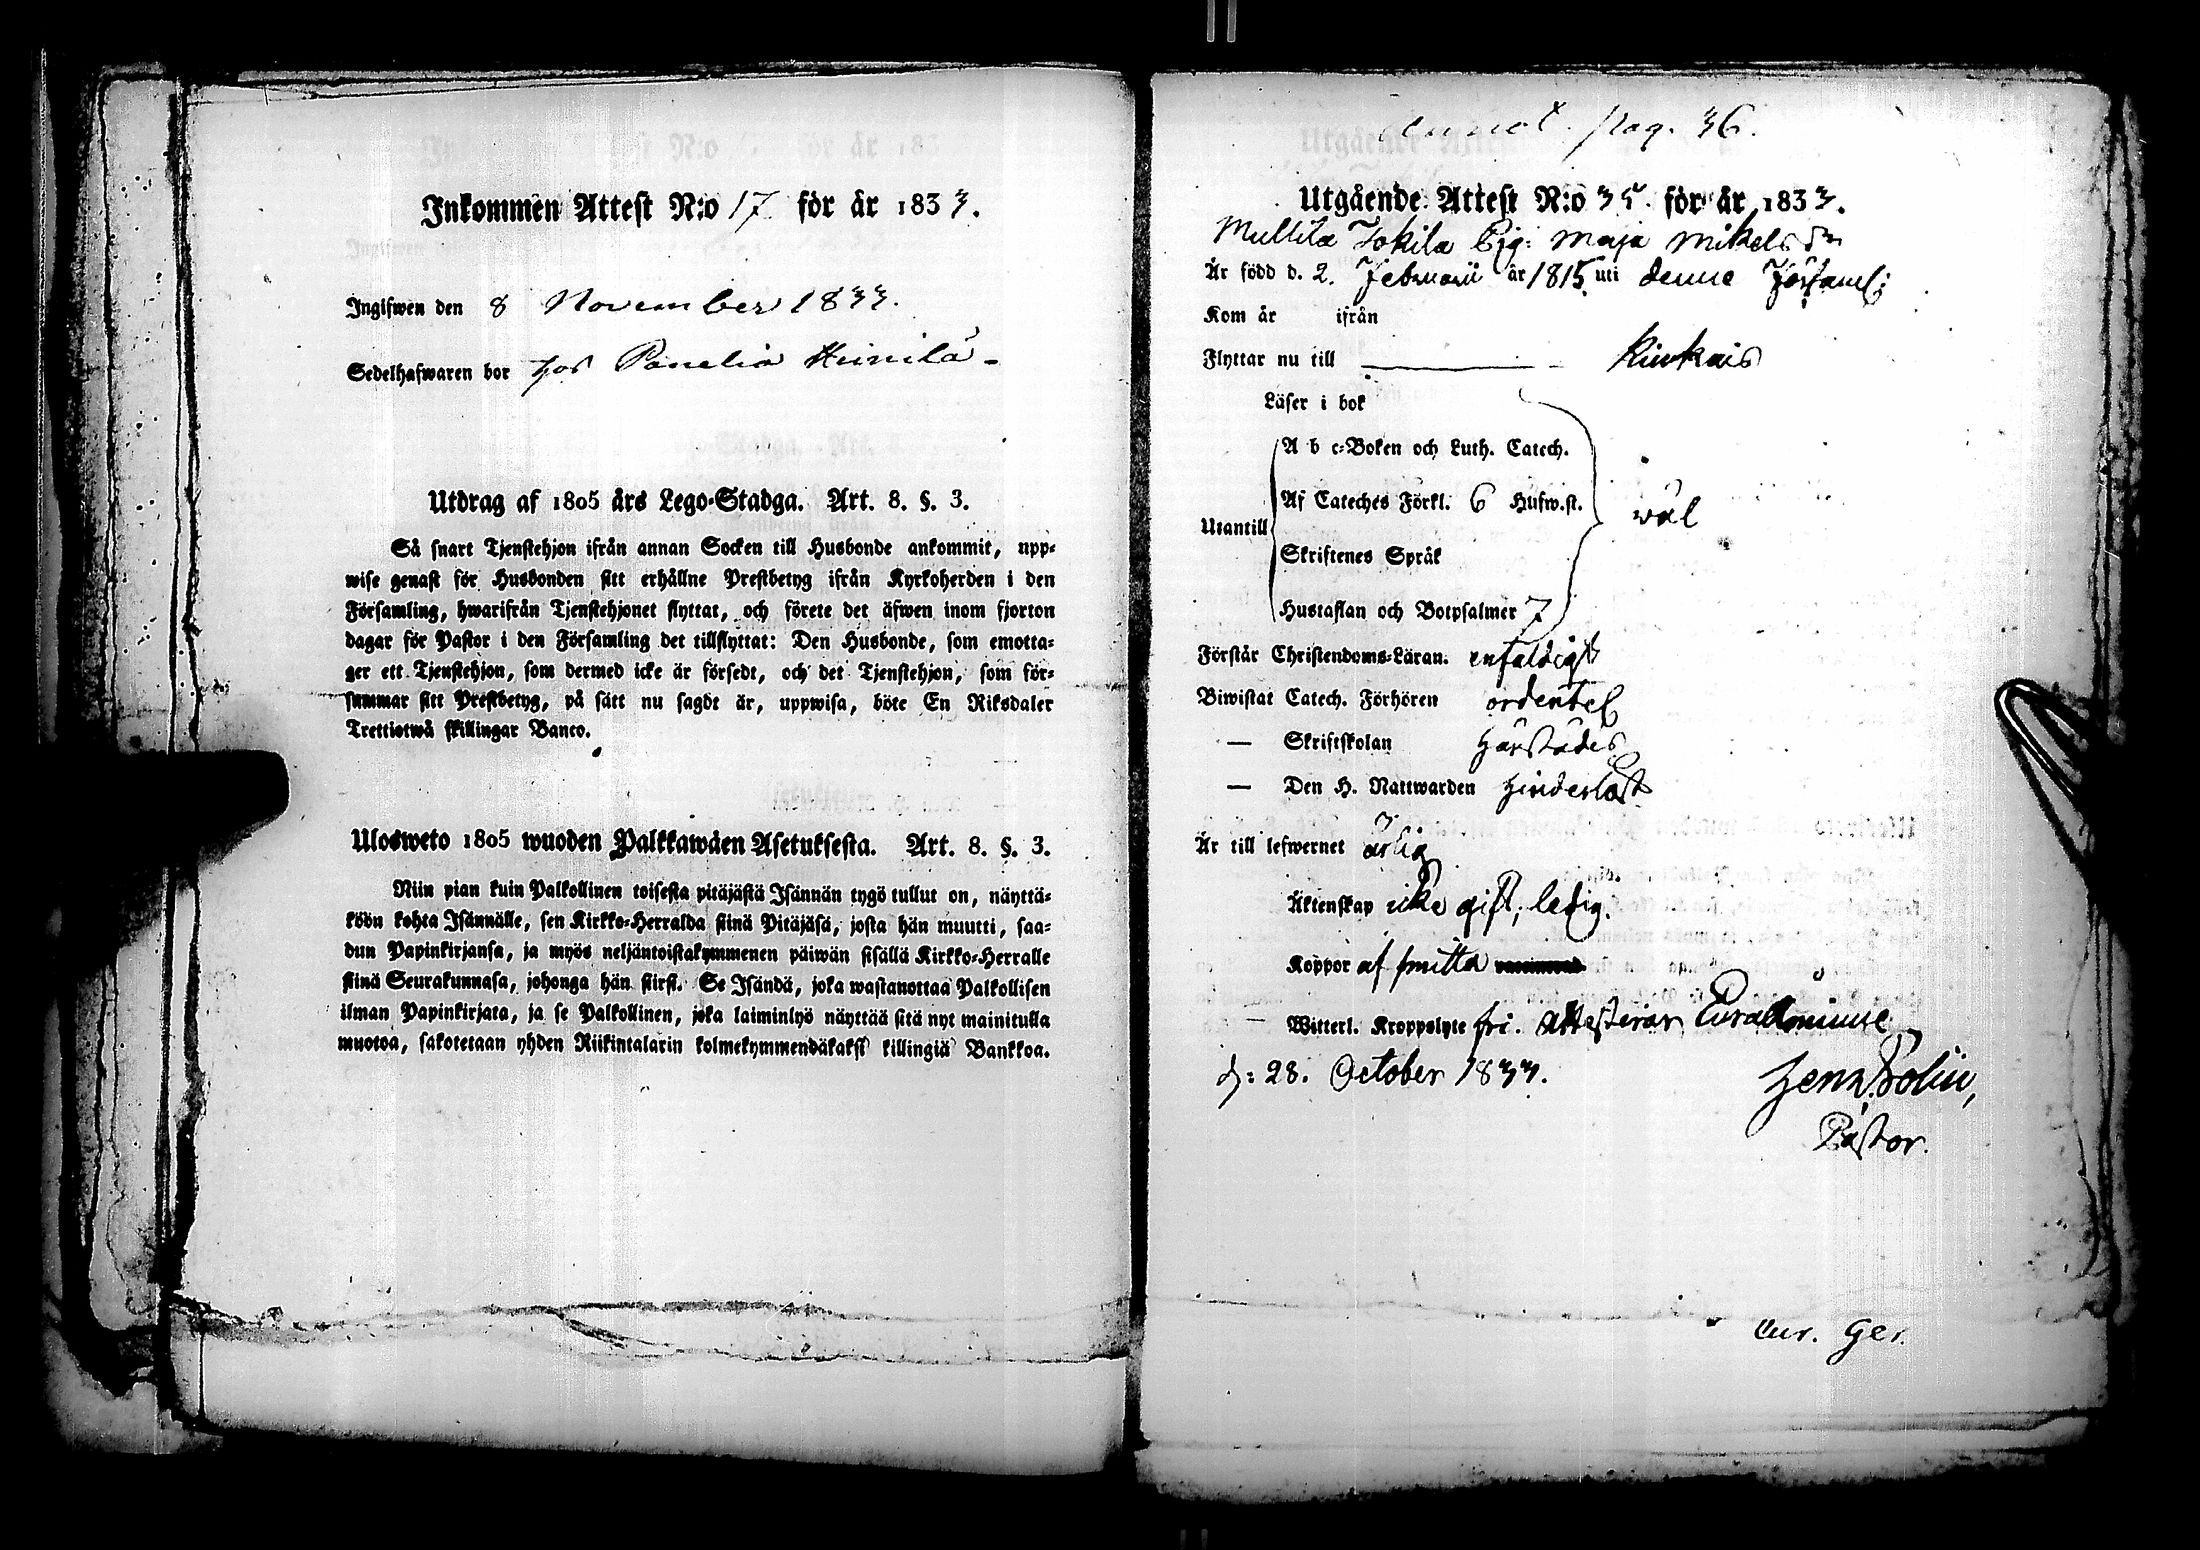 Inkommen Attest N:o 17 för år 1833.
Ingifwen den 8 November 1833.
Sedelhafwaren bor hos Panelia Heinilä -
Utdrag af 1805 års Lego-Stadga. Art. 8. §. 3.
Så snart Tjenstehjon ifrån annan Socken till Husbonde ankommit, upp-
wise genast för Husbonden sitt erhållne Prestbetyg ifrån Kyrkoherden i den
Församling, hwarifrån Tjenstehjonet flyttat, och förete det äfwen inom fjorton
dagar för Pastor i den Församling det tillflyttat: Den Husbonde, som emotta-
ger ett Tjenstehjon, som dermed icke är försedt, och det Tjenstehjon, som för-
summar sitt Prestbetyg, på sätt nu sagdt är, uppwisa, böte En Riksdaler
Trettiotwå skillingar Banco.
Ulosweto 1805 wuoden Palkkawäen Asetuksesta. Art. 8. §. 3.
Niin pian kuin Palkollinen toisesta pitäjästä Isännän tygö tullut on, näyttä-
köön kohta Isännälle, sen Kirkko-Herralda siinä Pitäjäsä, josta hän muutti, saa-
dun Papinkirjansa, ja myös neljäntoistakymmenen päiwän sisällä Kirkko-Herralle
siinä Seurakunnasa, johonga hän siirsi. Se Isändä, joka wastanottaa Palkollisen
ilman Papinkirjata, ja se Palkollinen, joka laiminlyö näyttää sitä nyt mainitulla
muotoa, sakotetaan yhden Riikintalarin kolmekymmendäkaksi killingiä Bankkoa.
Annot. pag. 36.
Utgående Attest N:o 35 för år 1833.
Mullila Tokila Pig: Maja Mikelsdr
Är född d. 2. Februarii år 1815 uti denne Församl:
Kom år ifrån
Flyttar nu till Kiukais
Läser i bok
A b c-Boken och Luth. Catech.
Af Cateches Förkl. 6 Hufw.st. wäl
Utantill
Skriftenes Språk
Hustaflan och Botpsalmer 7
Förstår Christendoms-Läran. enfaldigt
Biwistat Catech. Förhören ordentel
— Skriftskolan härstädes
— Den H. Nattwarden hinderlöst
Är till lefwernet ärlig
Äktenskap icke gift, ledig.
Koppor af smitta
— Witterl. Kroppslyte fri. Attesterar, Euraåminne
d: 28. October 1833.
Pastor.